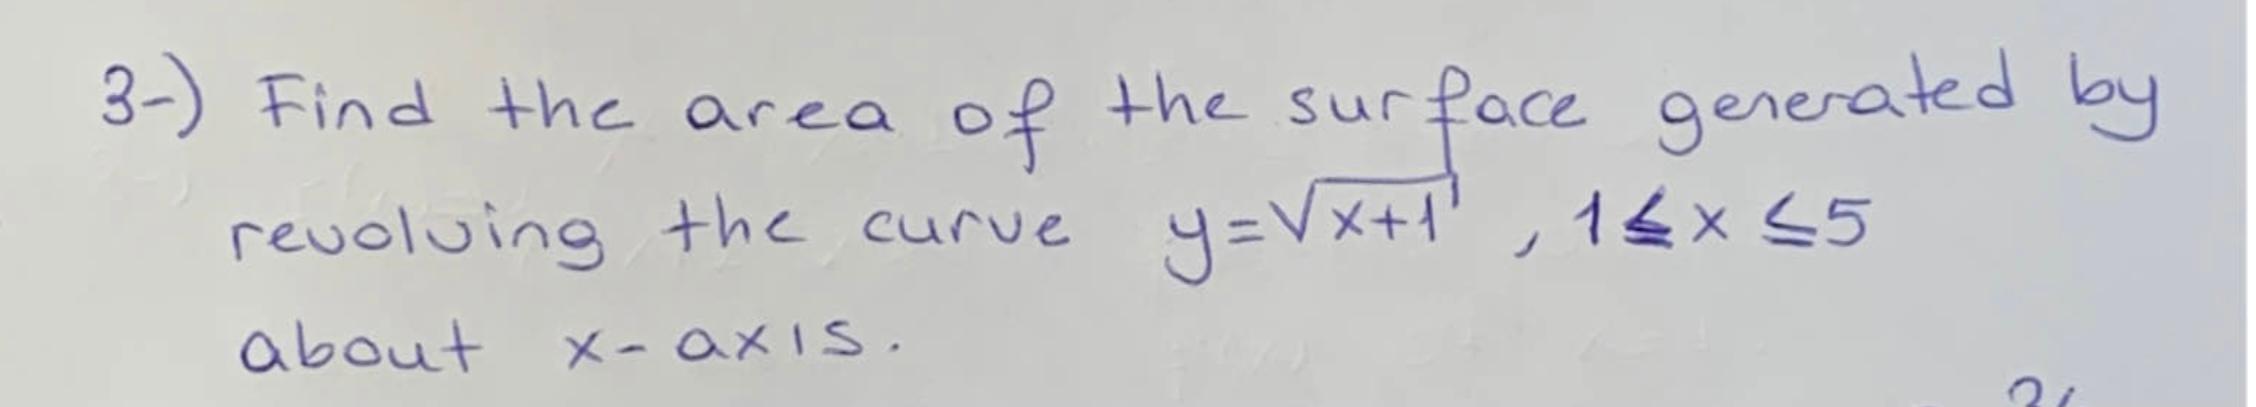 3-) Find the area of the surface generated by
revolving the curve y=√x+1 , 1≤x≤5
about x-axis.